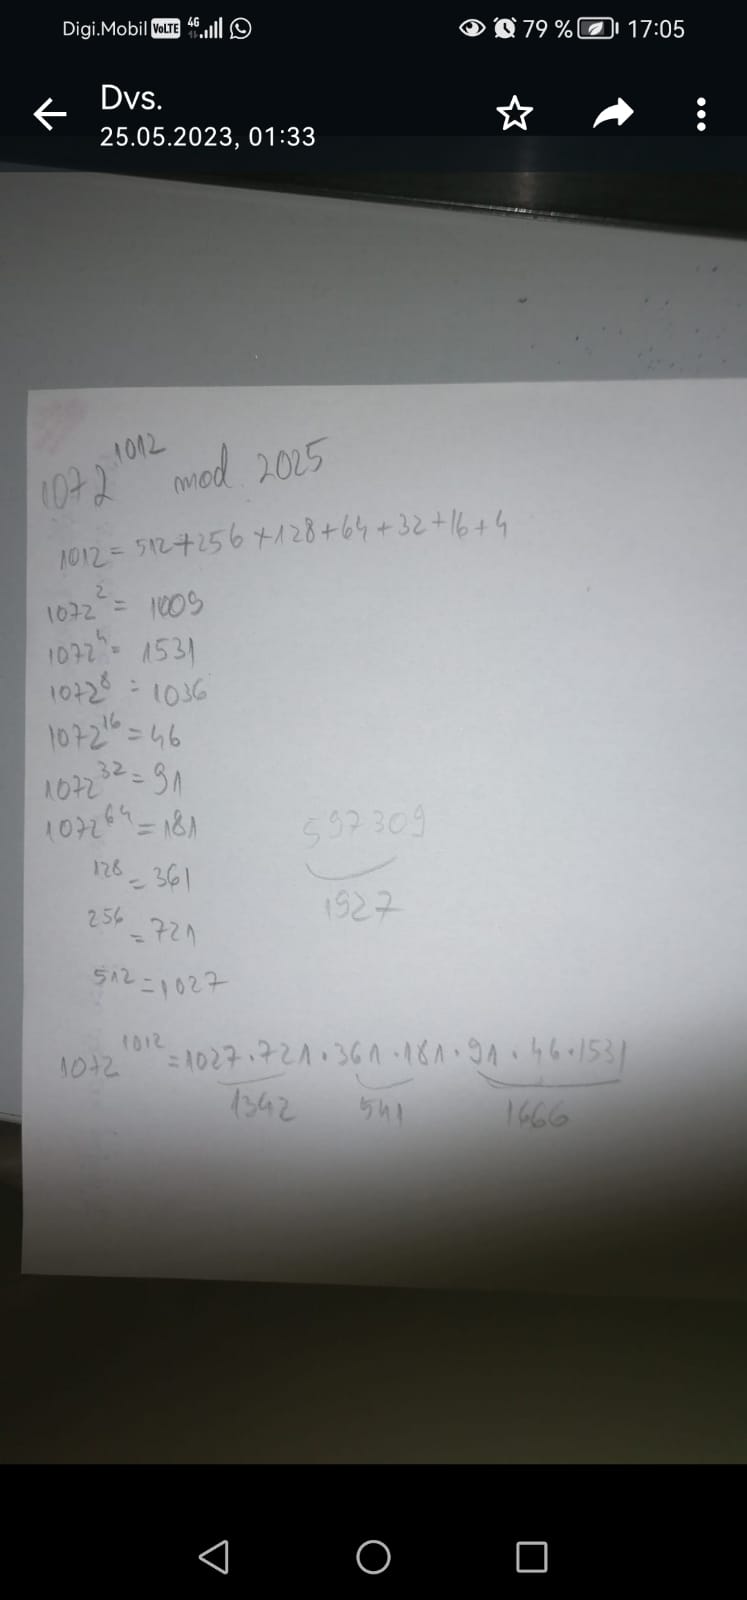 Digi.Mobil VoLTE 4G 79 % 17:05
Dvs.
25.05.2023, 01:33
1072^1012 mod 2025
1012 = 512+256+128+64+32+16+4
1072^2 = 1009
1072^4 = 1531
1072^8 = 1036
1072^16 = 46
1072^32 = 91
1072^64 = 181
597309
128 = 361
1927
256 = 721
512 = 1027
1072^1012 = 1027.721.361.181.91.46.1531
1342 541 1666